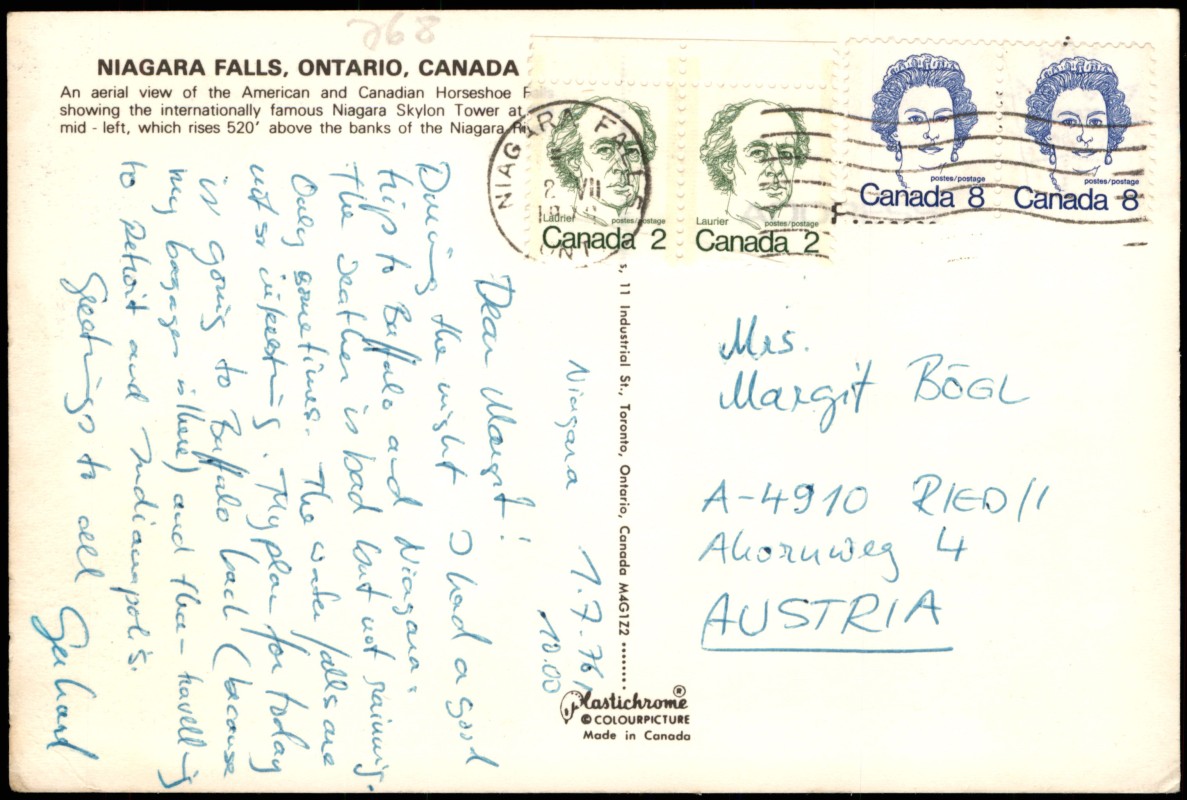 268
NIAGARA FALLS, ONTARIO, CANADA
An aerial view of the American and Canadian Horseshoe F
showing the internationally famous Niagara Skylon Tower at
mid - left, which rises 520' above the banks of the Niagara Ri
NIAGARA FALLS
2 VII
ONT
Laurier postes/postage
Canada 2
Laurier postes/postage
Canada 2
postes/postage
Canada 8
postes/postage
Canada 8
Niagara 1.7.76
10.00
Dear Margit!
During the night I had a good
trip to Buffalo and Niagara.
The Weather is bad but not raining.
Only sometimes. The water falls are
not so interesting. My plan for today
is going to Buffalo back (because
my bagages is there) and then travelling
to Detroit and Indianapolis.
Greetings to all
Gerhard
s, 11 Industrial St., Toronto, Ontario, Canada M4G1Z2
Plastichrome ®
© COLOURPICTURE
Made in Canada
Mrs.
Margit BÖGL
A-4910 RIED/I
Ahornweg 4
AUSTRIA